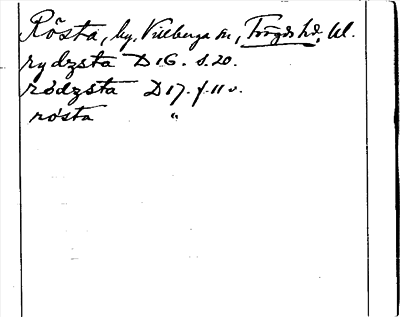 Rösta, by, Villberga sn, Trögds hd, Upl.
rydzsta D 16. s. 20.
rødzsta D 17. f. 11 v.
røsta "